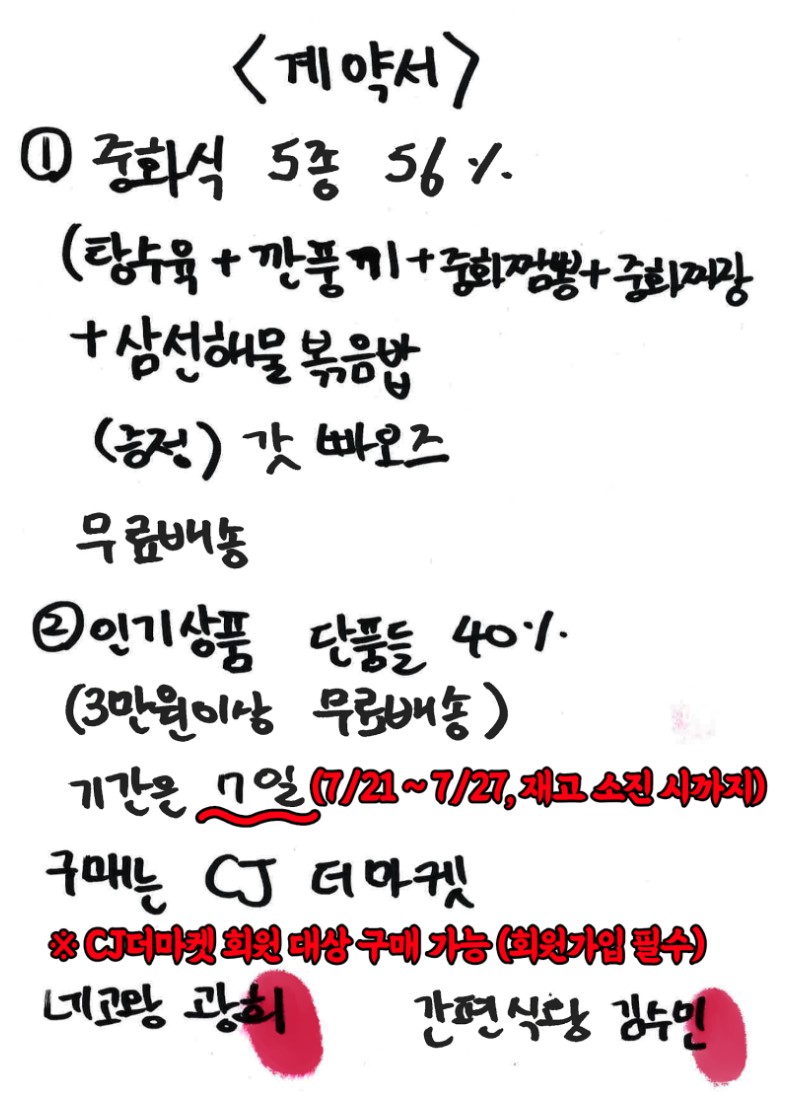 <계약서>
① 중화식 5종 56%
(탕수육 + 깐풍기 + 중화짬뽕 + 중화짜장
+ 삼선해물볶음밥
(증정) 갓 빠오즈
무료배송
② 인기상품 단품들 40%
(3만원이상 무료배송)
기간은 7일 (7/21 ~ 7/27, 재고 소진 시까지)
구매는 CJ 더마켓
※ CJ더마켓 회원 대상 구매 가능 (회원가입 필수)
네고왕 광희 간편식왕 김수민